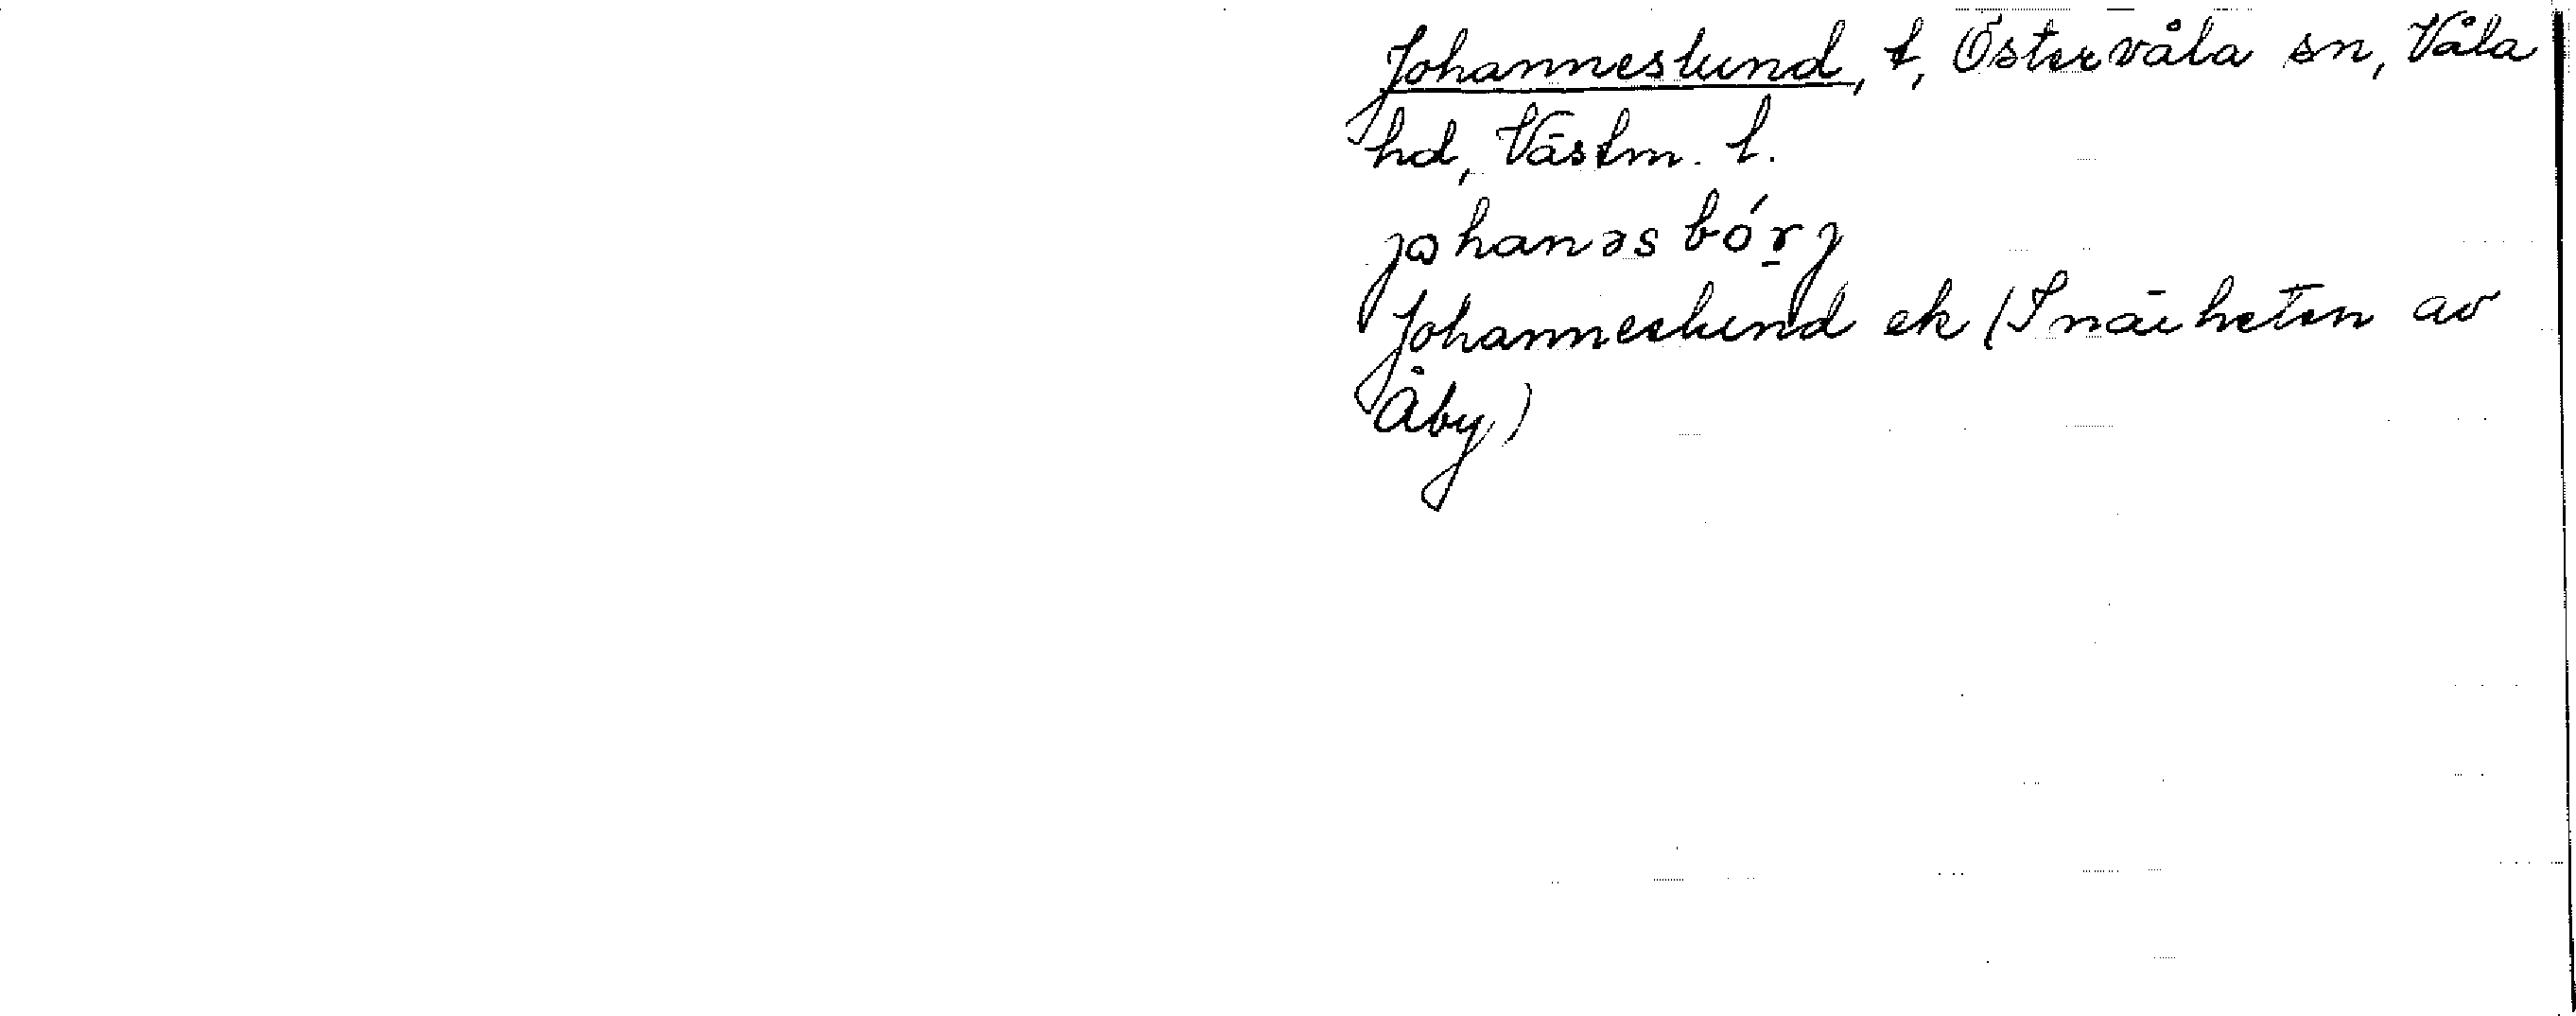 Johanneslund, t, Östervåla sn, Våla
hd, Västm. l.
johanəsbórj
Johanneslund ek (I närheten av
Åby)